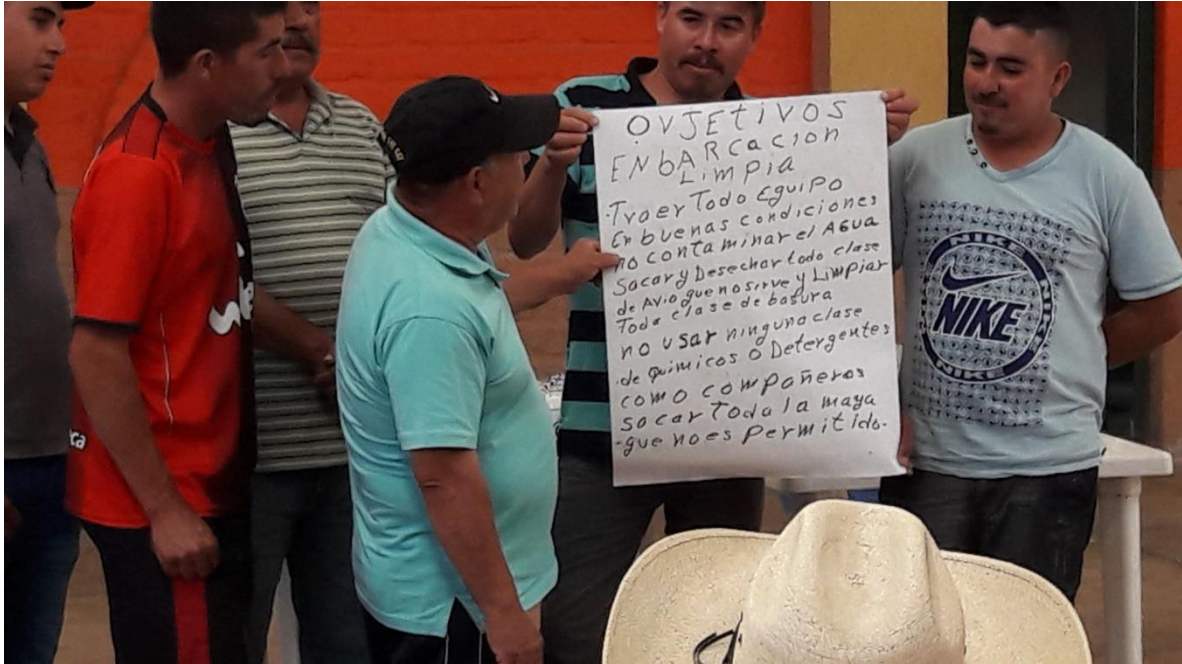 OVJETIVOS
ENbARCacION
LIMPIA
·Traer Todo EGUIPO
En buenas condiciones
no contaminar el AGUA
Sacar y Desechar todo clase
de Avio que no sirve y LImpiar
Toda clase de basura
no usar ninguna clase
·de químicos o Detergentes
como compañeros
sacar Toda la maya
-que no es Permitido.-
NIKE
NIKE
NIKE